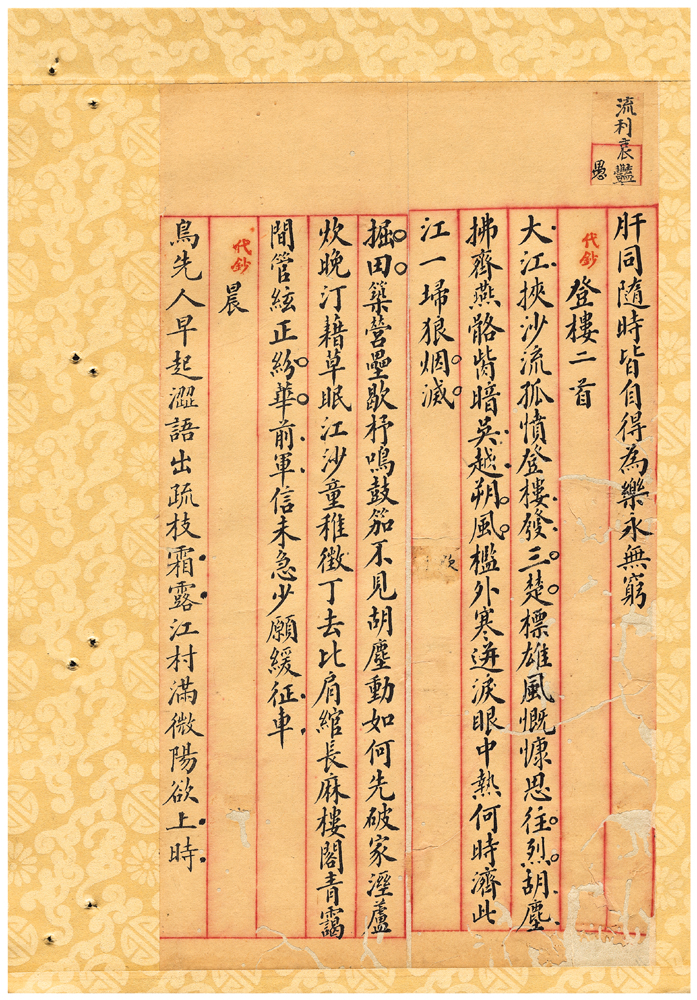 流利哀豔
愚
肝同隨時皆自得為樂永無窮
代鈔
登樓二首
大江挾沙流孤憤登樓發三楚標雄風慨慷思往烈胡塵
拂齊燕骼胔暗吳越朔風檻外寒迸淚眼中熱何時濟此
江一埽狼烟滅
掘田築營壘歇杼鳴鼓笳不見胡塵動如何先破家溼蘆
炊晚汀藉草眠江沙童稚徵丁去比肩綰長麻樓閣青靄
間管絃正紛華前軍信未急少願緩征車
代鈔
晨
鳥先人早起澀語出疏枝霜露江村滿微陽欲上時